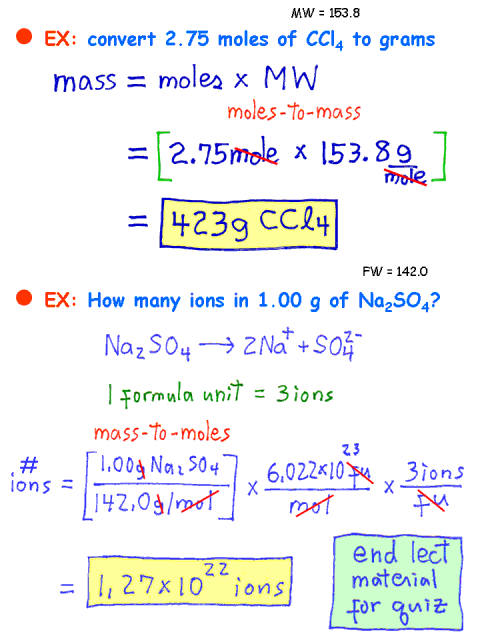 MW = 153.8
EX: convert 2.75 moles of CCl₄ to grams
mass = moles x MW
moles-to-mass
= [2.75 mole x 153.8 g/mole]
= 423g CCl₄
FW = 142.0
EX: How many ions in 1.00 g of Na₂SO₄?
Na₂SO₄ → 2Na⁺ + SO₄²⁻
1 formula unit = 3 ions
mass-to-moles
# ions = [1.00g Na₂SO₄ / 142.0g/mol] x 6.022x10²³ fu / mol x 3 ions / fu
= 1.27x10²² ions
end lect
material
for quiz